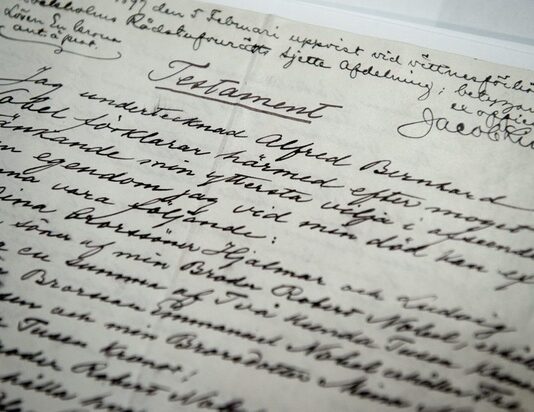 1897 den 5 Februari uppvist vid vittnesförhö
Stockholms Rådstufvurätts sjette Afdelning; betygar
Lösen En krona
ex officio
Jacob
Testament
Jag undertecknad Alfred Bernhard
Nobel förklarar härmed efter moget
betänkande min yttersta vilja i afseende
egendom jag vid min död kan ef
vara följande:
Mina Brorsöner Hjalmar och Ludvig
söner af min Broder Robert Nobel, erhålla
en Summa af Två Hundra Tusen Kronor
Brorson Emmanuel Nobel erhåller Tre
och min Brorsdotter Mina
Tusen Kronor;
Broder Robert Nobels
erhålla